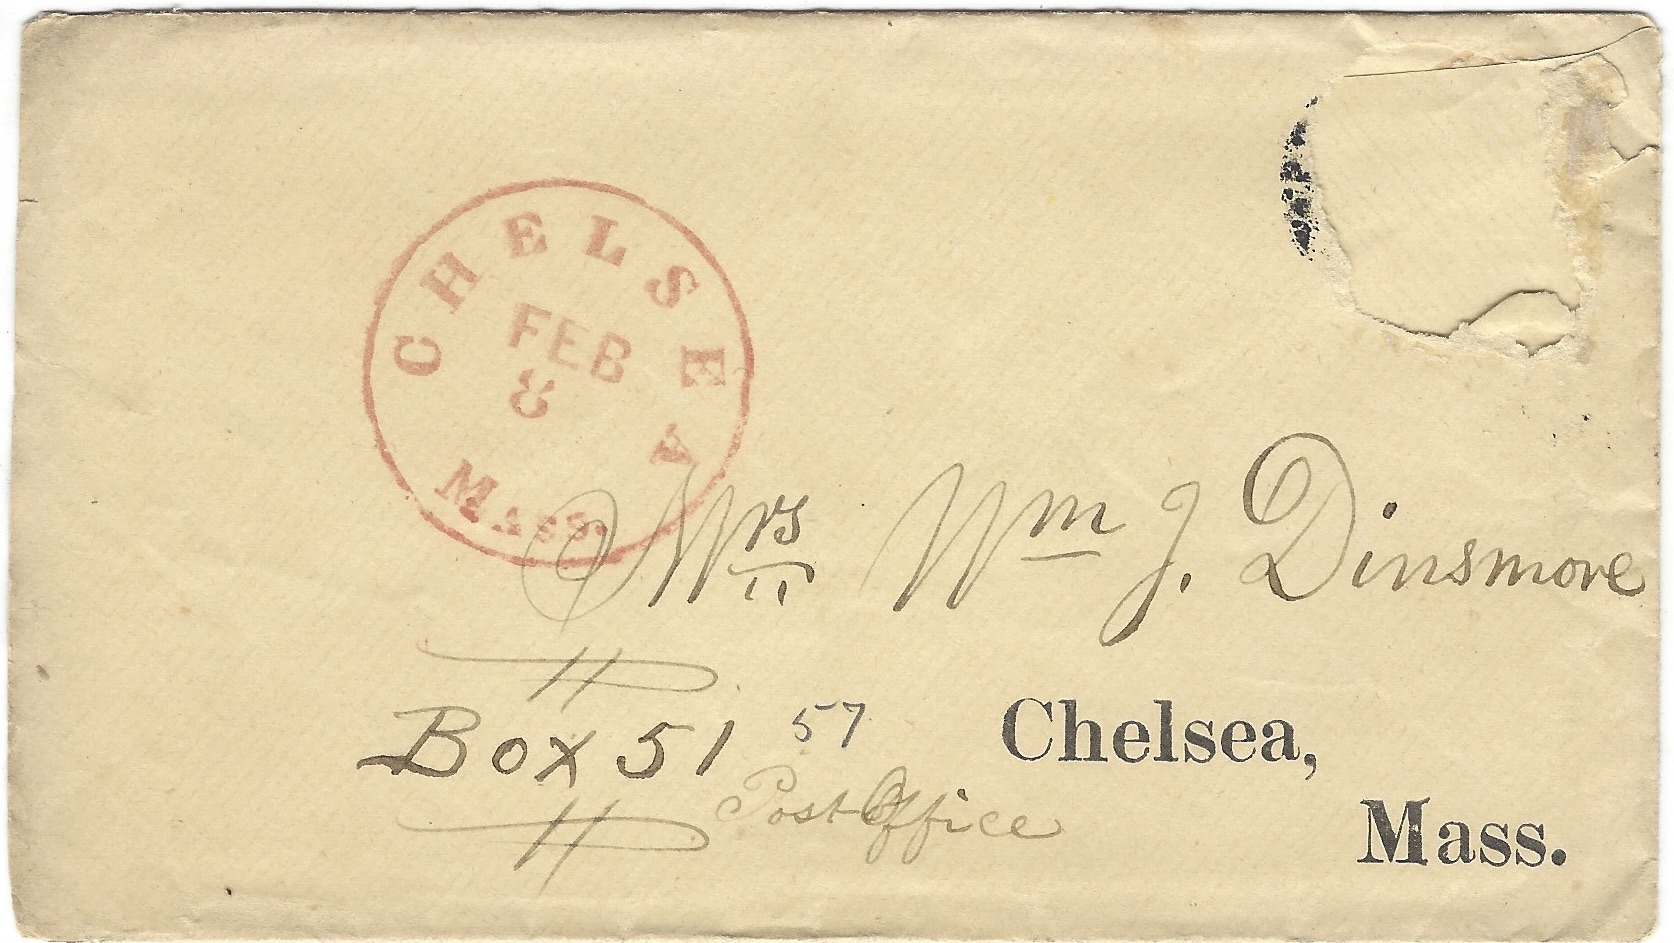 CHELSEA
FEB
8
MASS.
Mrs Wm J. Dinsmore
Box 51 57
Post Office
Chelsea,
Mass.